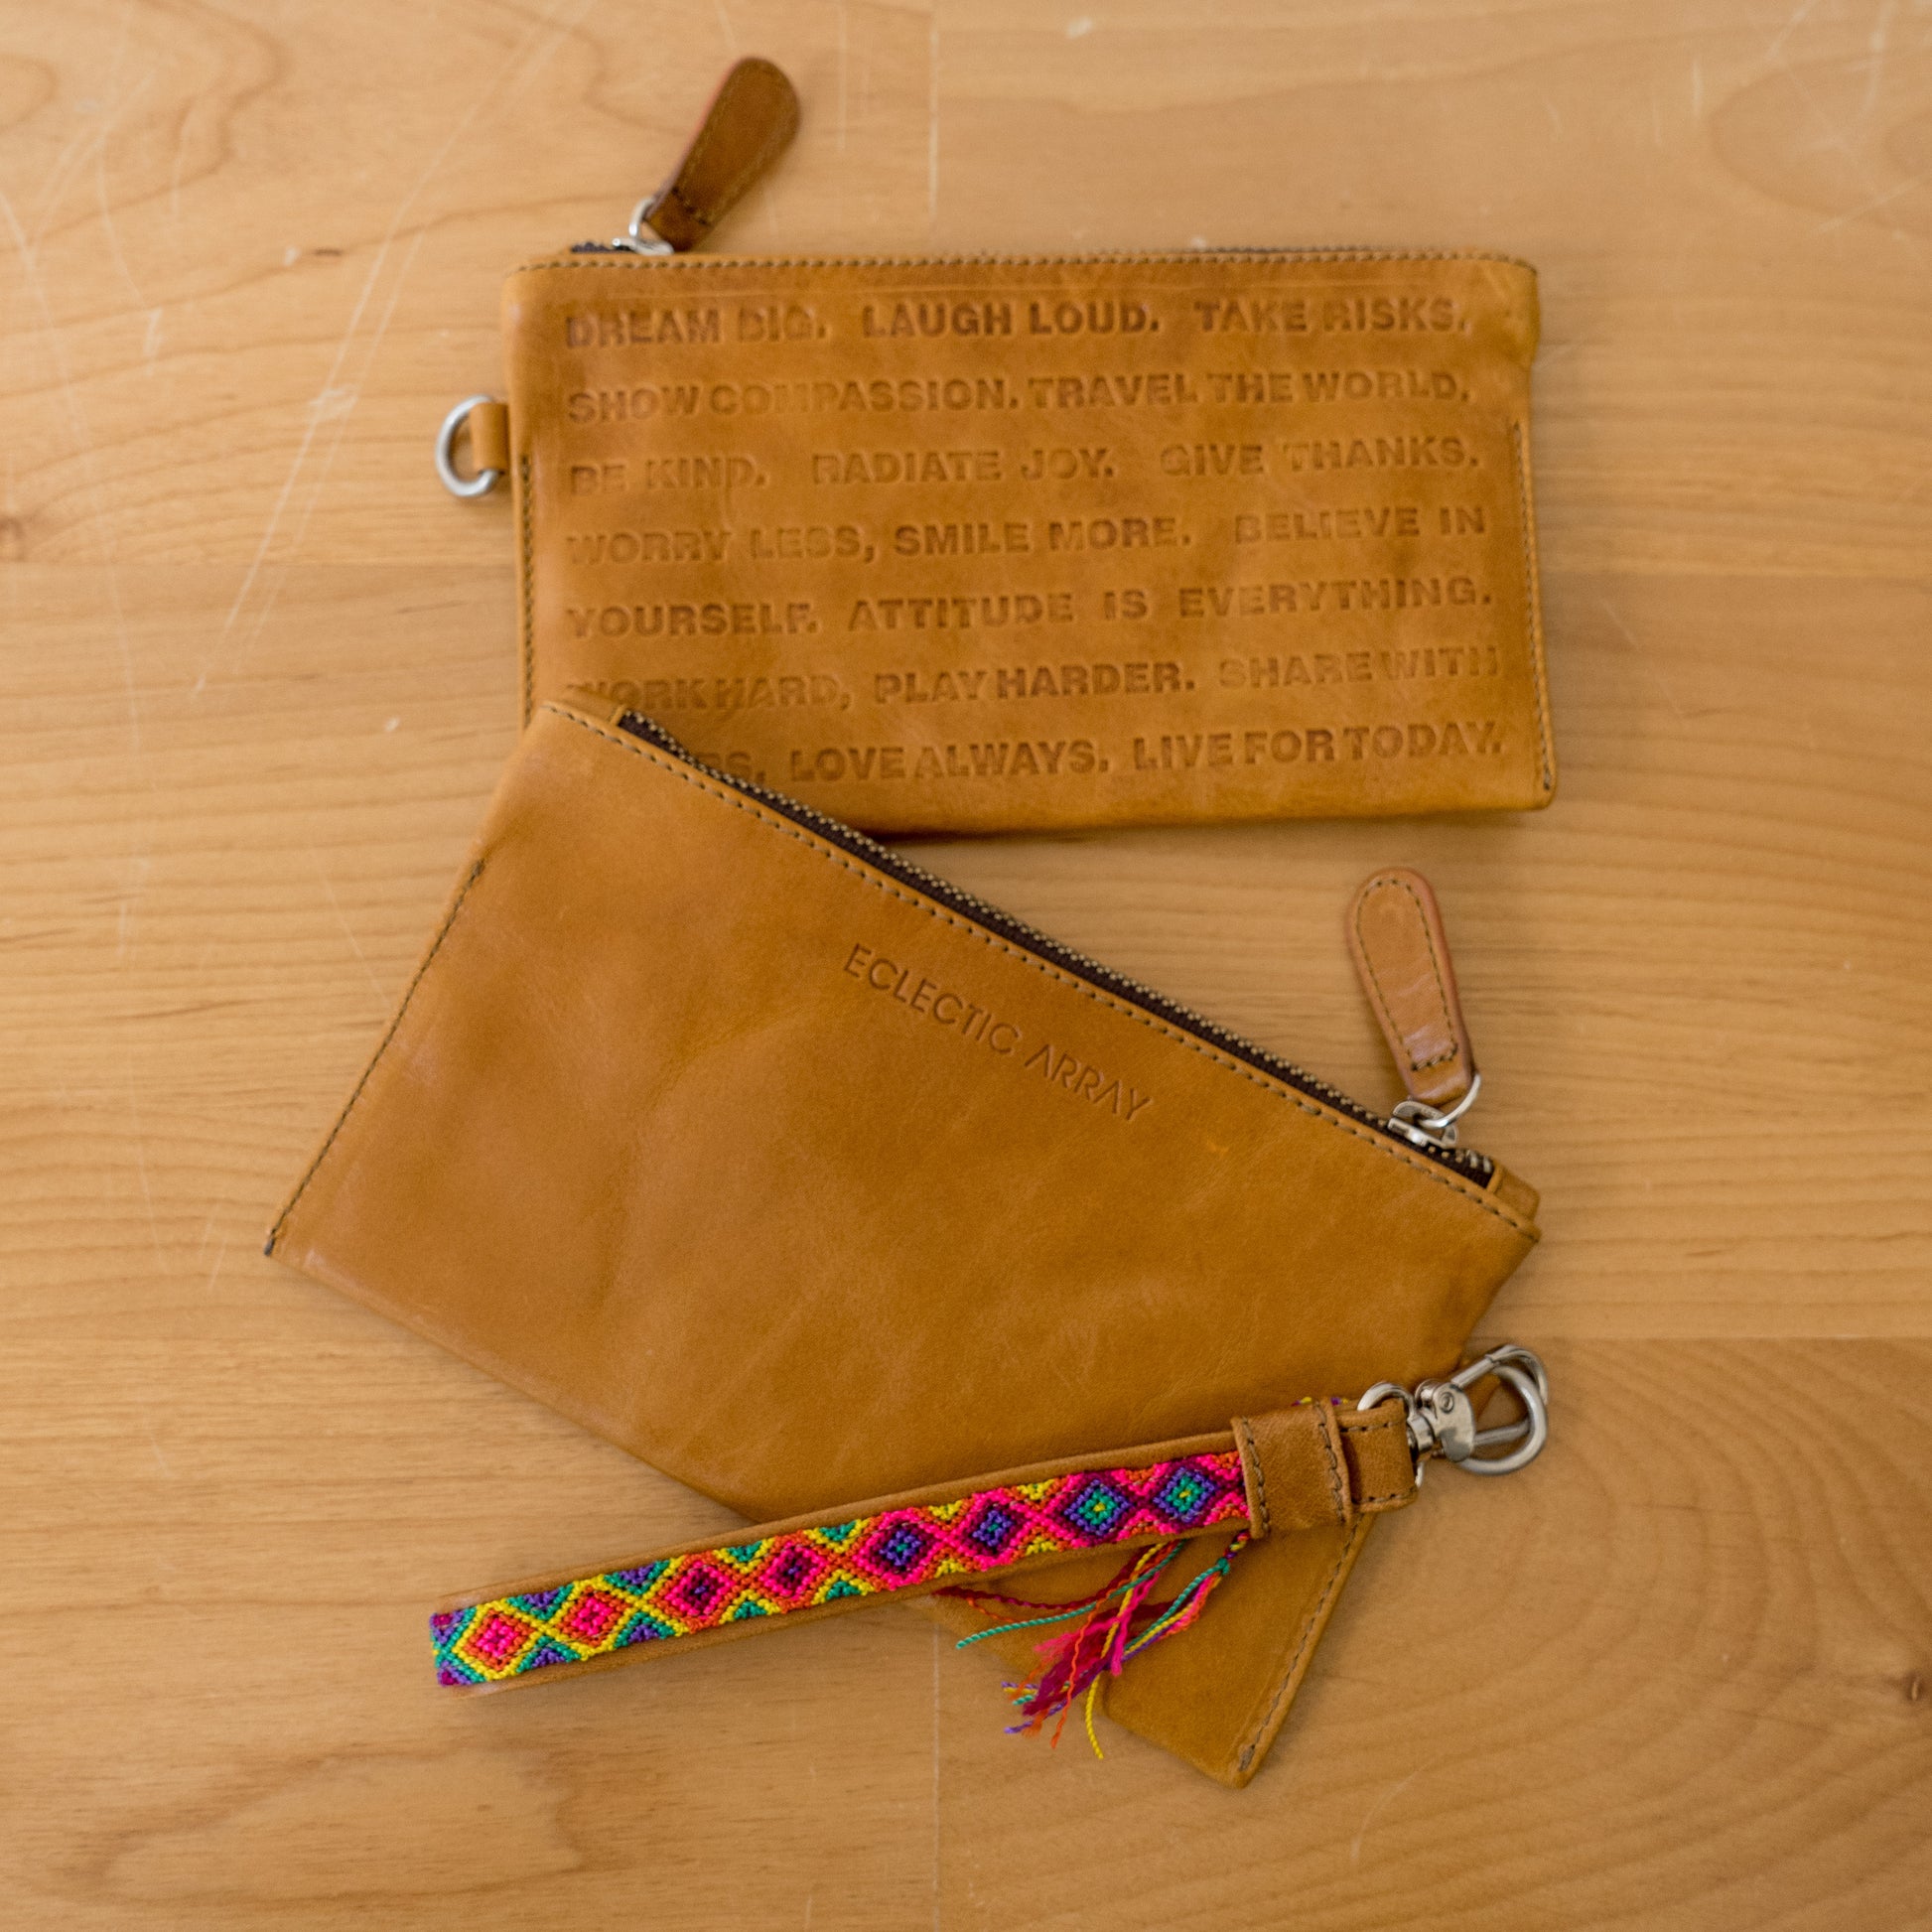 DREAM BIG. LAUGH LOUD. TAKE RISKS.
SHOW COMPASSION. TRAVEL THE WORLD.
BE KIND. RADIATE JOY. GIVE THANKS.
WORRY LESS, SMILE MORE. BELIEVE IN
YOURSELF. ATTITUDE IS EVERYTHING.
WORK HARD, PLAY HARDER. SHARE WITH
LOVE ALWAYS. LIVE FOR TODAY.
ECLECTIC ARRAY